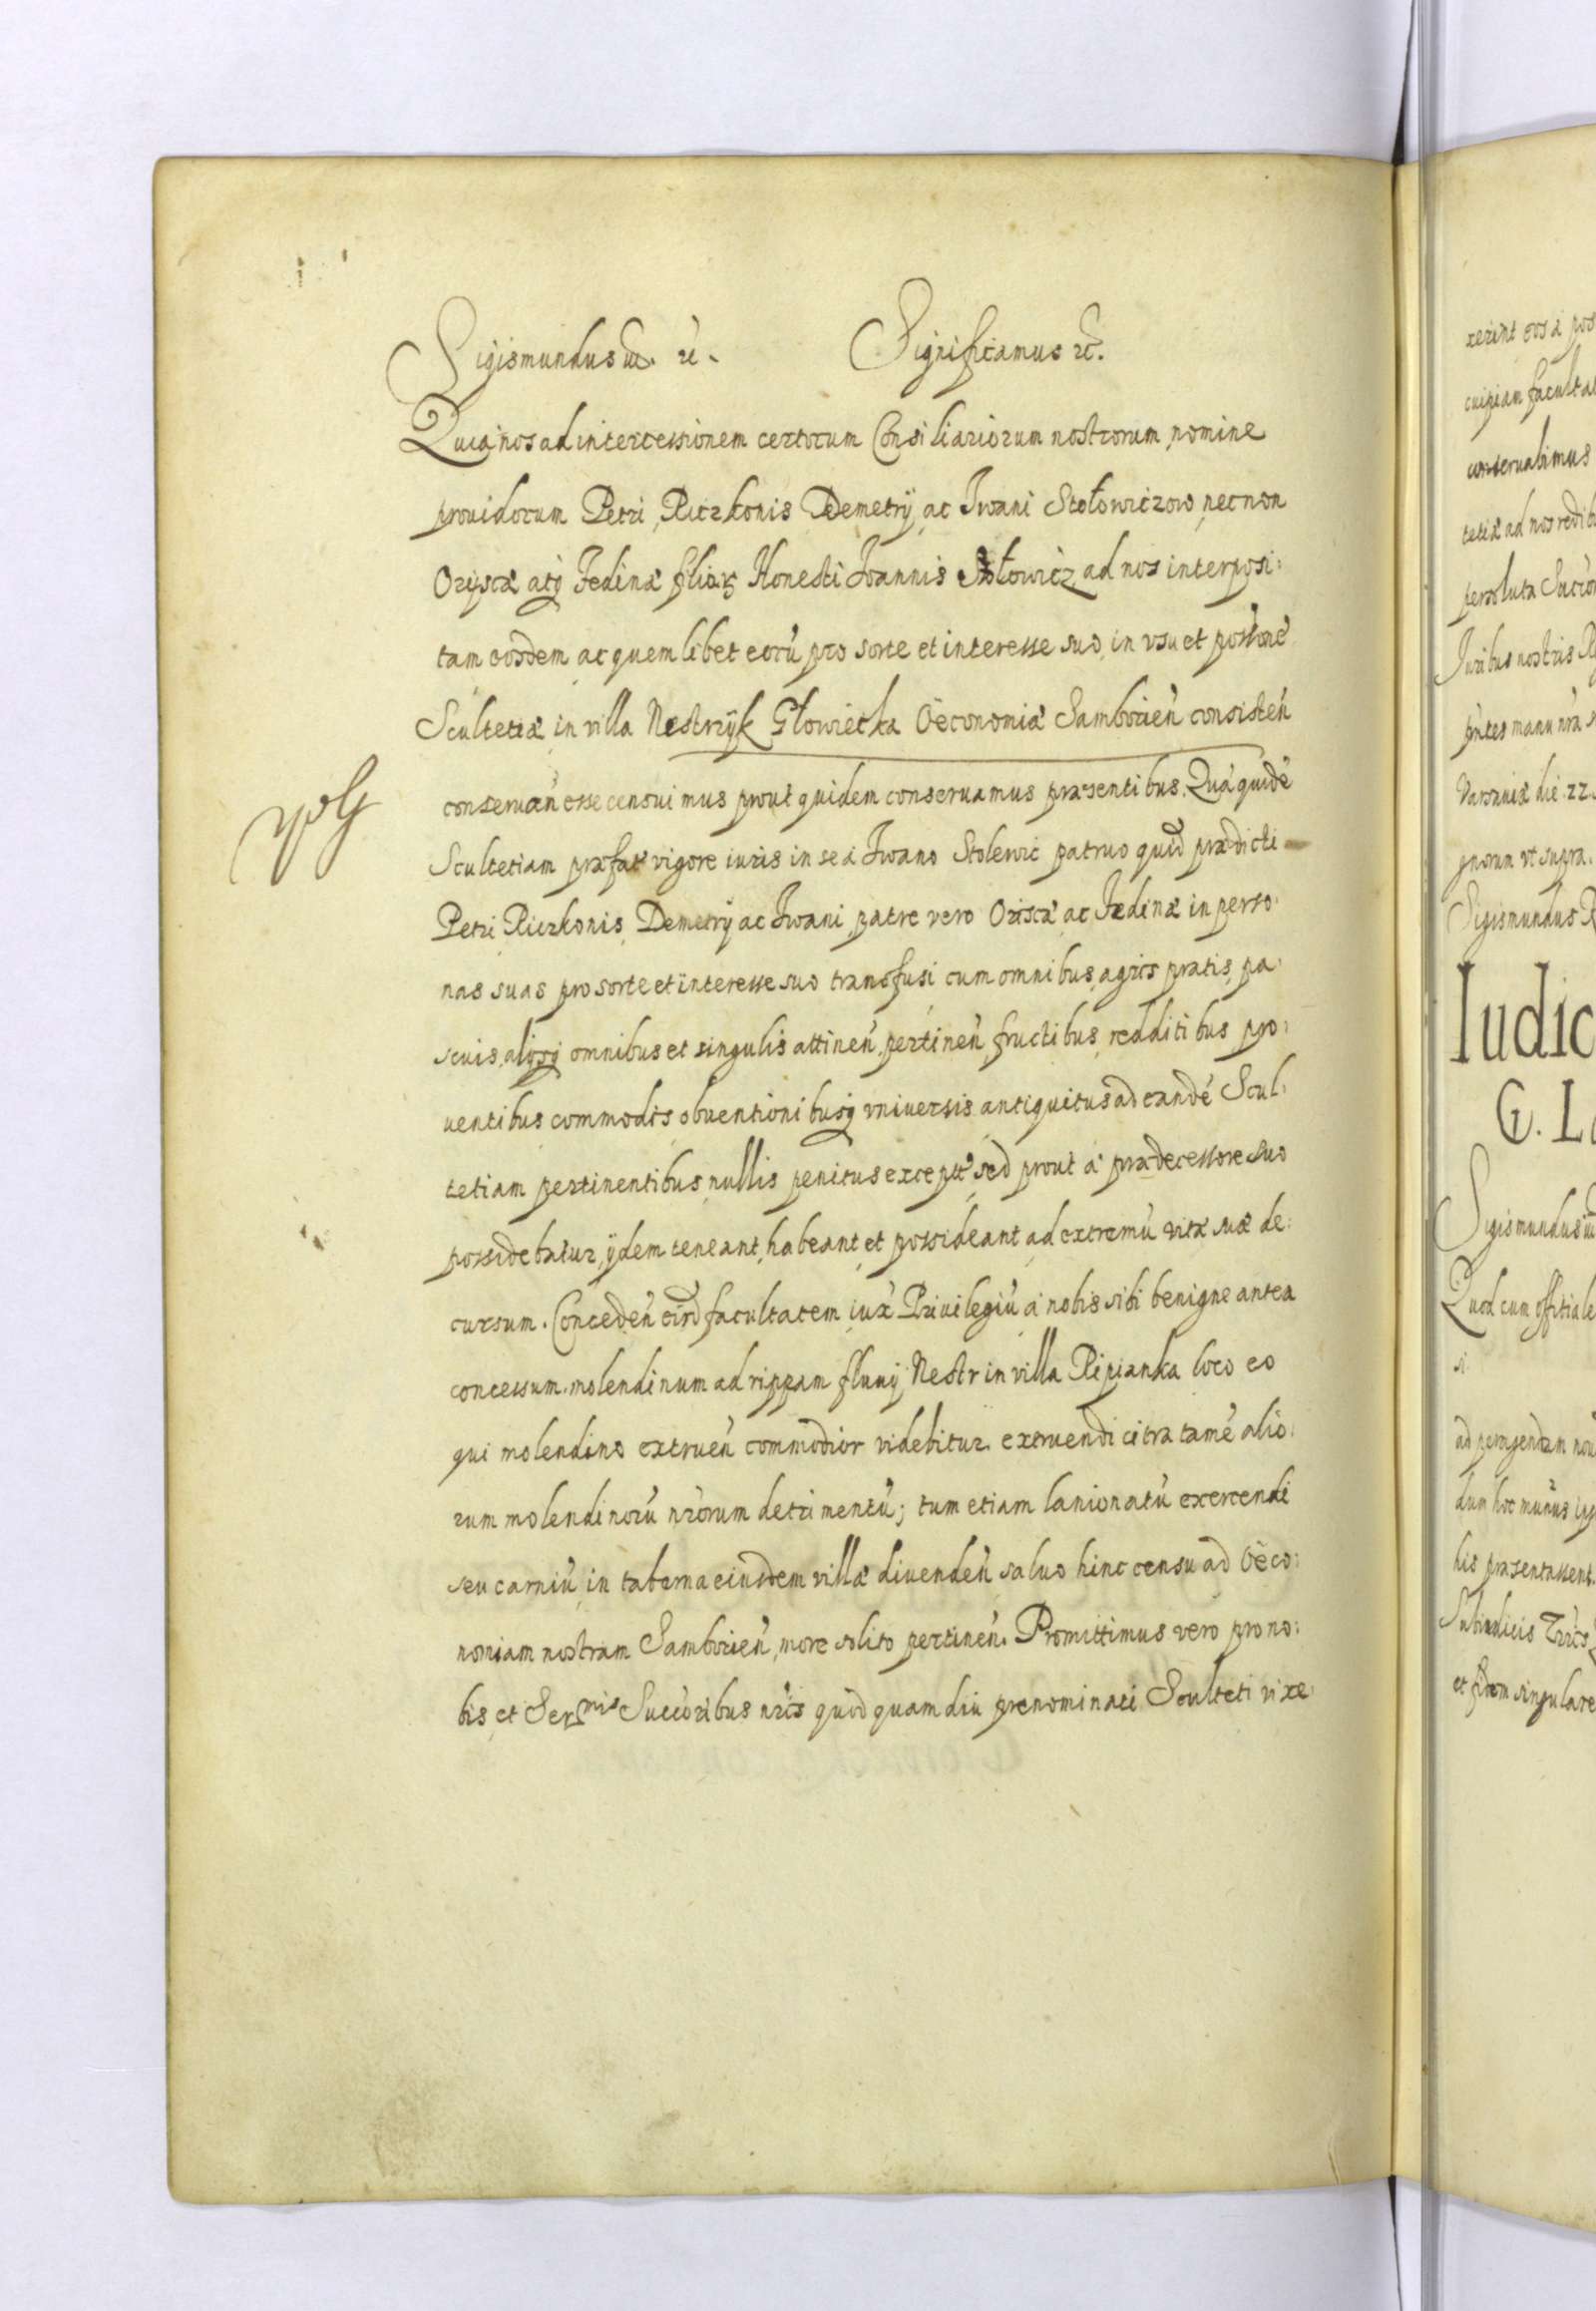 Sigismundus etc. etc. Significamus etc.
Quia nos ad intercessionem certorum Consiliariorum nostrorum, nomine
prouidorum Petri, Riczkonis Demetrÿ, ac Iwani Stołowiczow, necnon
Orÿscæ atq̃ Fedinæ filiar̃ Honesti Ioannis Stołowicz, ad nos interposi:
tam eosdem ac quemlibet eorũ pro sorte et interesse suo, in vsu et possoñe
Scultetiæ in villa Nestrzÿk Głowiecka Oeconomiæ Samborieñ consisteñ
conseruañ esse censuimus prout quidem conseruamus præsentibus. Quã quidẽ
Scultetiam præfať vigore iuris in se à Iwano Stolewic patruo quid̃ prædicti
Petri Riczkonis, Demetrÿ ac Iwani, patre vero Oriscæ ac Fedinæ in perso:
nas suas pro sorte et interesse suo transfusi cum omnibus, agris pratis, pa:
scuis, alÿsq̃ omnibus et singulis attineñ, pertineñ, fructibus, redditibus pro:
uentibus commodis obuentionibusq̃ vniuersis antiquitus ad eandẽ Scul:
tetiam pertinentibus, nullis penitus excepť, sed prout à prædecessore suo
possidebatur, ÿdem teneant, habeant, et possideant ad extremũ vitæ suæ de:
cursum. Concedeñ eisd̃ facultatem iux̃ Priuilegiũ à nobis sibi benigne antea
concessum. molendinum ad rippam fluuÿ Nestr in villa Ripianka loco eo
qui molendino extrueñ commodior videbitur. extruendi citra tamẽ alio:
rum molendinorũ nr̃orum detrimentũ; tum etiam lanionatũ exercendi
seu carniũ in taberna eiusdem villæ diuendeñ saluo hinc censu ad Oeco:
nomiam nostram Samborieñ, more solito pertineñ. Promittimus vero pro no:
bis, et Ser̃mis Succoribus nr̃is quòd quamdiu prenominati Sculteti vixe:
xerint eos à pos
cuipiam facultat
conseruabimus
tetiæ ad nos redib
persoluta
Iuribus nostris R
pñtes manu nr̃a s
Varsauiæ die 22.
gnorum vt supra.
Sigismundus R
Iudic
G. La
Sigismundus
Quod cum offitiale
si
ad peragendum nou
dum hoc munus ips
his præsentassent.
Subiudicis Tr̃ris
et fidem singulare